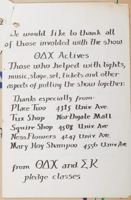 We would like to thank all
of those involved with the show
ΘΔΧ Actives
Those who helped with lights,
music, stage, set, tickets and other
aspects of putting the show together.
Thanks especially from:
Place Two 4315 Univ Ave
Tux Shop Northgate Mall
Squire Shop 4508 Univ Ave
Ness Flowers 4247 Univ Ave
Mary Hoy Shampoo 45th Univ Ave
from ΘΔΧ and ΣΚ
pledge classes